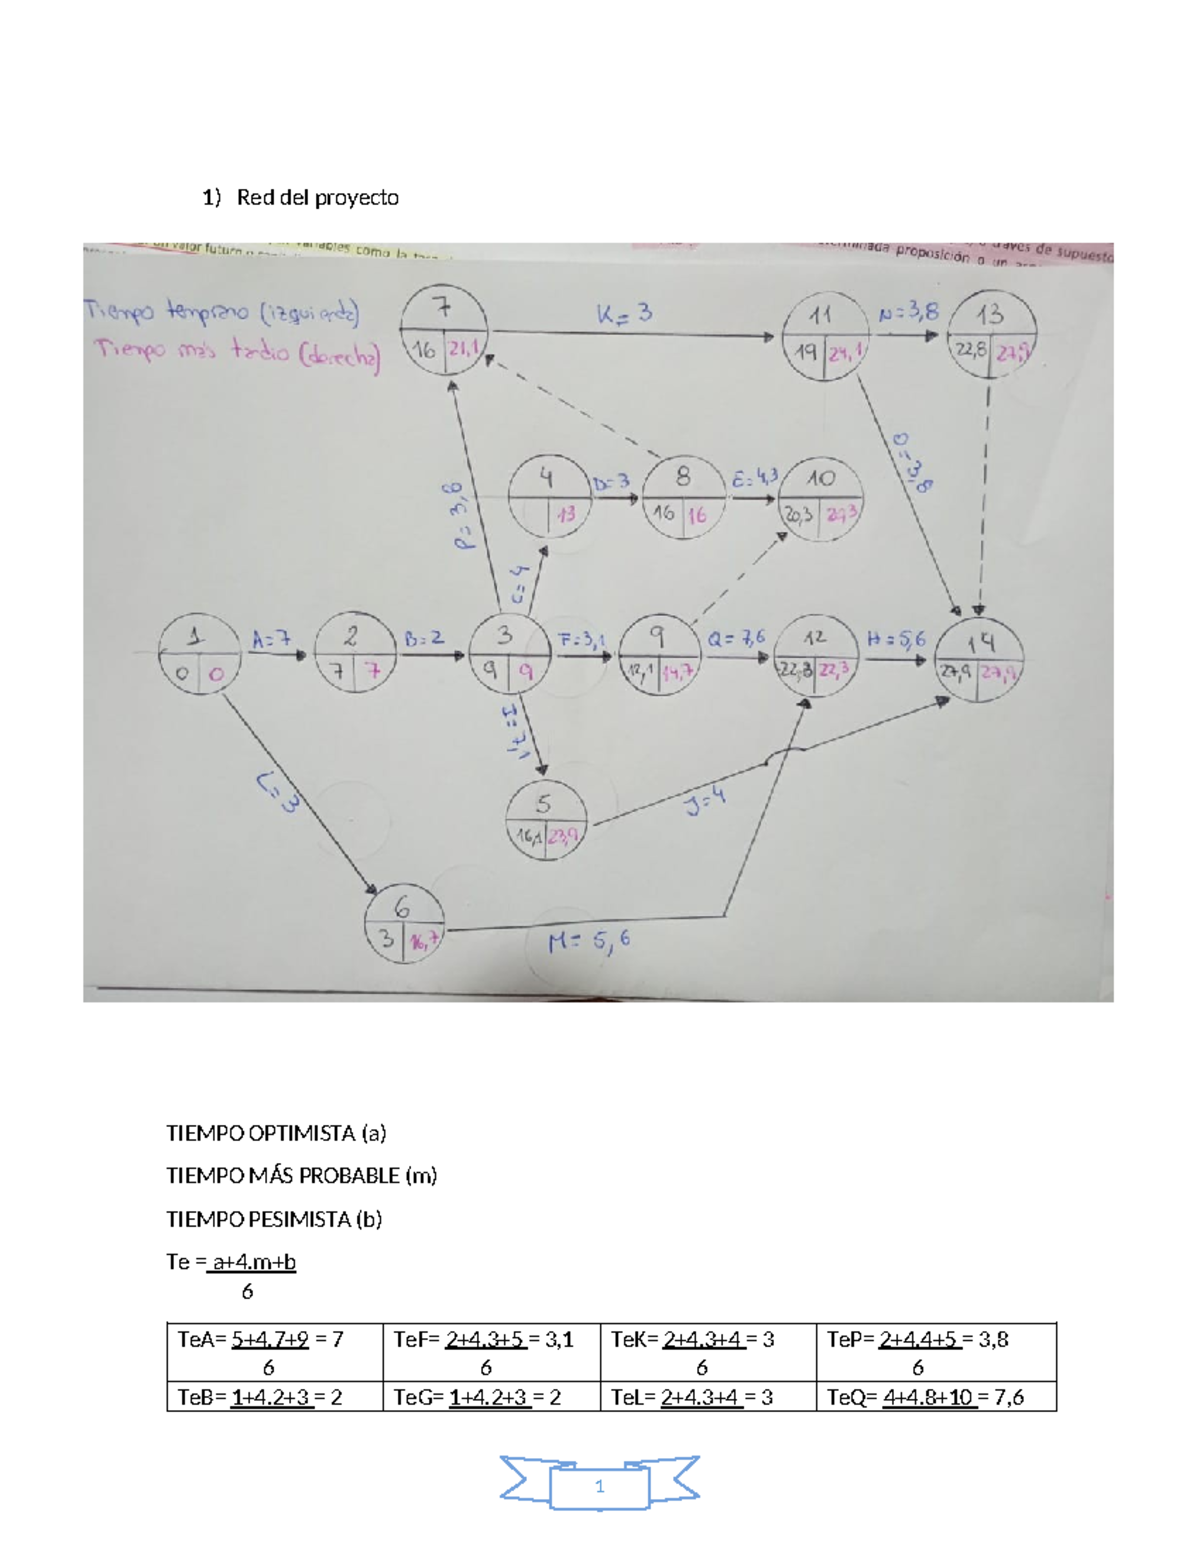 1) Red del proyecto
un valor futuro
variables como la
través de supuesto
proposición o un
Tiempo temprano (izquierda)
Tiempo más tardio (derecha)
7
16 21,1
K= 3
11
19 24,1
N=3,8
13
22,8 27,9
P= 3,8
4
13
D=3
8
16 16
E=4,3
10
20,3
O=3,8
C=4
1
0 0
A=7
2
7 7
B=2
3
9 9
F=3,1
9
12,1 14,7
Q= 7,6
12
22,3 22,3
H=5,6
14
27,9 27,9
I=7,1
L=3
5
16,1 23,9
J=4
6
3 16,7
M= 5,6
TIEMPO OPTIMISTA (a)
TIEMPO MÁS PROBABLE (m)
TIEMPO PESIMISTA (b)
Te = a+4.m+b
6
TeA= 5+4.7+9 = 7 TeF= 2+4.3+5 = 3,1 TeK= 2+4.3+4 = 3 TeP= 2+4.4+5 = 3,8
6 6 6 6
TeB= 1+4.2+3 = 2 TeG= 1+4.2+3 = 2 TeL= 2+4.3+4 = 3 TeQ= 4+4.8+10 = 7,6
1